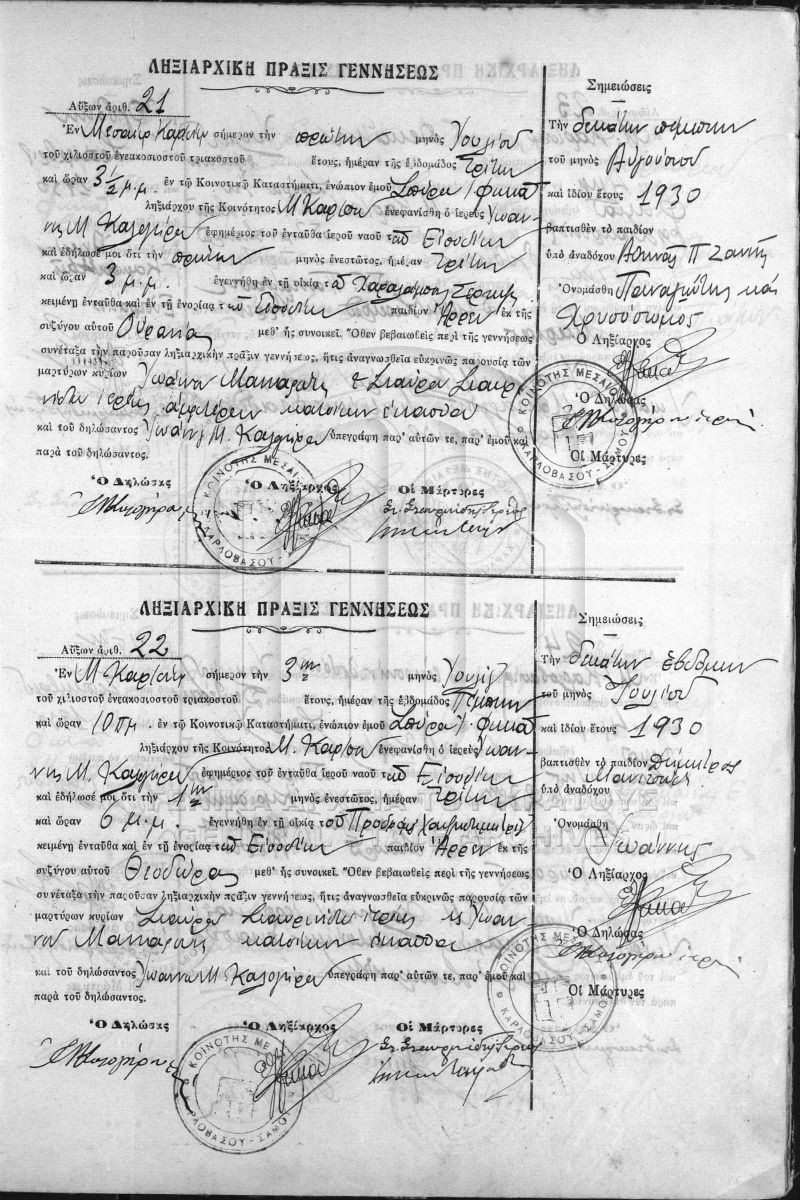 ΛΗΞΙΑΡΧΙΚΗ ΠΡΑΞΙΣ ΓΕΝΝΗΣΕΩΣ
Αὔξων ἀριθ. 21
Ἐν Μεσαίῳ Καρλ/σῳ σήμερον τὴν πρώτην μηνὸς Ἰουλίου
τοῦ χιλιοστοῦ ἐνεακοσιοστοῦ τριακοστοῦ ἔτους, ἡμέραν τῆς ἑβδομάδος Τρίτην
καὶ ὥραν 3 1/2 μ.μ. ἐν τῷ Κοινοτικῷ Καταστήματι, ἐνώπιον ἐμοῦ
ληξιάρχου τῆς Κοινότητος Μ Καρ/σου ἐνεφανίσθη ὁ ἱερεὺς Ἰωάν-
νης Μ. Καλογήρου ἐφημέριος τοῦ ἐνταῦθα ἱεροῦ ναοῦ τῶν Εἰσοδίων
καὶ ἐδήλωσέ μοι ὅτι τὴν πρώτην μηνὸς ἐνεστῶτος, ἡμέραν Τρίτην
καὶ ὥραν 3 μ.μ. ἐγεννήθη ἐν τῇ οἰκίᾳ τοῦ Χαραλάμπους
κειμένῃ ἐνταῦθα καὶ ἐν τῇ ἐνορίᾳ τῶν Εἰσοδίων παιδίον Ἄρρεν ἐκ τῆς
συζύγου αὐτοῦ Οὐρανίας μεθ᾽ ἧς συνοικεῖ. Ὅθεν βεβαιωθεὶς περὶ τῆς γεννήσεως
συνέταξα τὴν παροῦσαν ληξιαρχικὴν πρᾶξιν γεννήσεως, ἥτις ἀναγνωσθεῖσα εὐκρινῶς παρουσίᾳ τῶν
μαρτύρων κυρίων Ἰωάννου & Σταύρου Σταυρι-
νίδου ἀμφοτέρων κατοίκων ἐνταῦθα
καὶ τοῦ δηλώσαντος Ἰωάννη Μ. Καλογήρου ὑπεγράφη παρ᾽ αὐτῶν τε, παρ᾽ ἐμοῦ καὶ
παρὰ τοῦ δηλώσαντος.
Ὁ Δηλώσας Ὁ Ληξίαρχος Οἱ Μάρτυρες
ΚΟΙΝΟΤΗΣ ΜΕΣΑΙΟΥ ΚΑΡΛΟΒΑΣΟΥ - ΣΑΜΟΥ
Σημειώσεις
Τὴν δεκάτην πέμπτην
τοῦ μηνὸς Αὐγούστου
καὶ ἰδίου ἔτους 1930
βαπτισθὲν τὸ παιδίον
ὑπὸ ἀναδόχου Ἀθηνᾶς Π
Ὀνομάσθη Παναγιώτης καὶ
Χρυσόστομος
Ὁ Ληξίαρχος
Ὁ Δηλώσας
ΚΟΙΝΟΤΗΣ ΜΕΣΑΙΟΥ ΚΑΡΛΟΒΑΣΟΥ - ΣΑΜΟΥ
Οἱ Μάρτυρες
ΛΗΞΙΑΡΧΙΚΗ ΠΡΑΞΙΣ ΓΕΝΝΗΣΕΩΣ
Αὔξων ἀριθ. 22
Ἐν Μ. Καρ/σῳ σήμερον τὴν 3ην μηνὸς Ἰουλίου
τοῦ χιλιοστοῦ ἐνεακοσιοστοῦ τριακοστοῦ ἔτους, ἡμέραν τῆς ἑβδομάδος Πέμπτην
καὶ ὥραν 10 πμ. ἐν τῷ Κοινοτικῷ Καταστήματι, ἐνώπιον ἐμοῦ
ληξιάρχου τῆς Κοινότητος Μ. Καρ/σου ἐνεφανίσθη ὁ ἱερεὺς Ἰωάν-
νης Μ. Καλογήρου ἐφημέριος τοῦ ἐνταῦθα ἱεροῦ ναοῦ τῶν Εἰσοδίων
καὶ ἐδήλωσέ μοι ὅτι τὴν 1ην μηνὸς ἐνεστῶτος, ἡμέραν Τρίτην
καὶ ὥραν 6 μ.μ. ἐγεννήθη ἐν τῇ οἰκίᾳ τοῦ Προδρόμου
κειμένῃ ἐνταῦθα καὶ ἐν τῇ ἐνορίᾳ τῶν Εἰσοδίων παιδίον Ἄρρεν ἐκ τῆς
συζύγου αὐτοῦ Θεοδώρας μεθ᾽ ἧς συνοικεῖ. Ὅθεν βεβαιωθεὶς περὶ τῆς γεννήσεως
συνέταξα τὴν παροῦσαν ληξιαρχικὴν πρᾶξιν γεννήσεως, ἥτις ἀναγνωσθεῖσα εὐκρινῶς παρουσίᾳ τῶν
μαρτύρων κυρίων Σταύρου Σταυρινίδου Ἰωάν-
νου κατοίκων ἐνταῦθα
καὶ τοῦ δηλώσαντος Ἰωάννου Μ. Καλογήρου ὑπεγράφη παρ᾽ αὐτῶν τε, παρ᾽ ἐμοῦ καὶ
παρὰ τοῦ δηλώσαντος.
Ὁ Δηλώσας Ὁ Ληξίαρχος Οἱ Μάρτυρες
ΚΟΙΝΟΤΗΣ ΜΕΣΑΙΟΥ ΚΑΡΛΟΒΑΣΟΥ - ΣΑΜΟΥ
Σημειώσεις
Τὴν δεκάτην ἑβδόμην
τοῦ μηνὸς Ἰουλίου
καὶ ἰδίου ἔτους 1930
βαπτισθὲν τὸ παιδίον
ὑπὸ ἀναδόχου
Ὀνομάσθη
Ἰωάννης
Ὁ Ληξίαρχος
Ὁ Δηλώσας
ΚΟΙΝΟΤΗΣ ΜΕΣΑΙΟΥ ΚΑΡΛΟΒΑΣΟΥ - ΣΑΜΟΥ
Οἱ Μάρτυρες